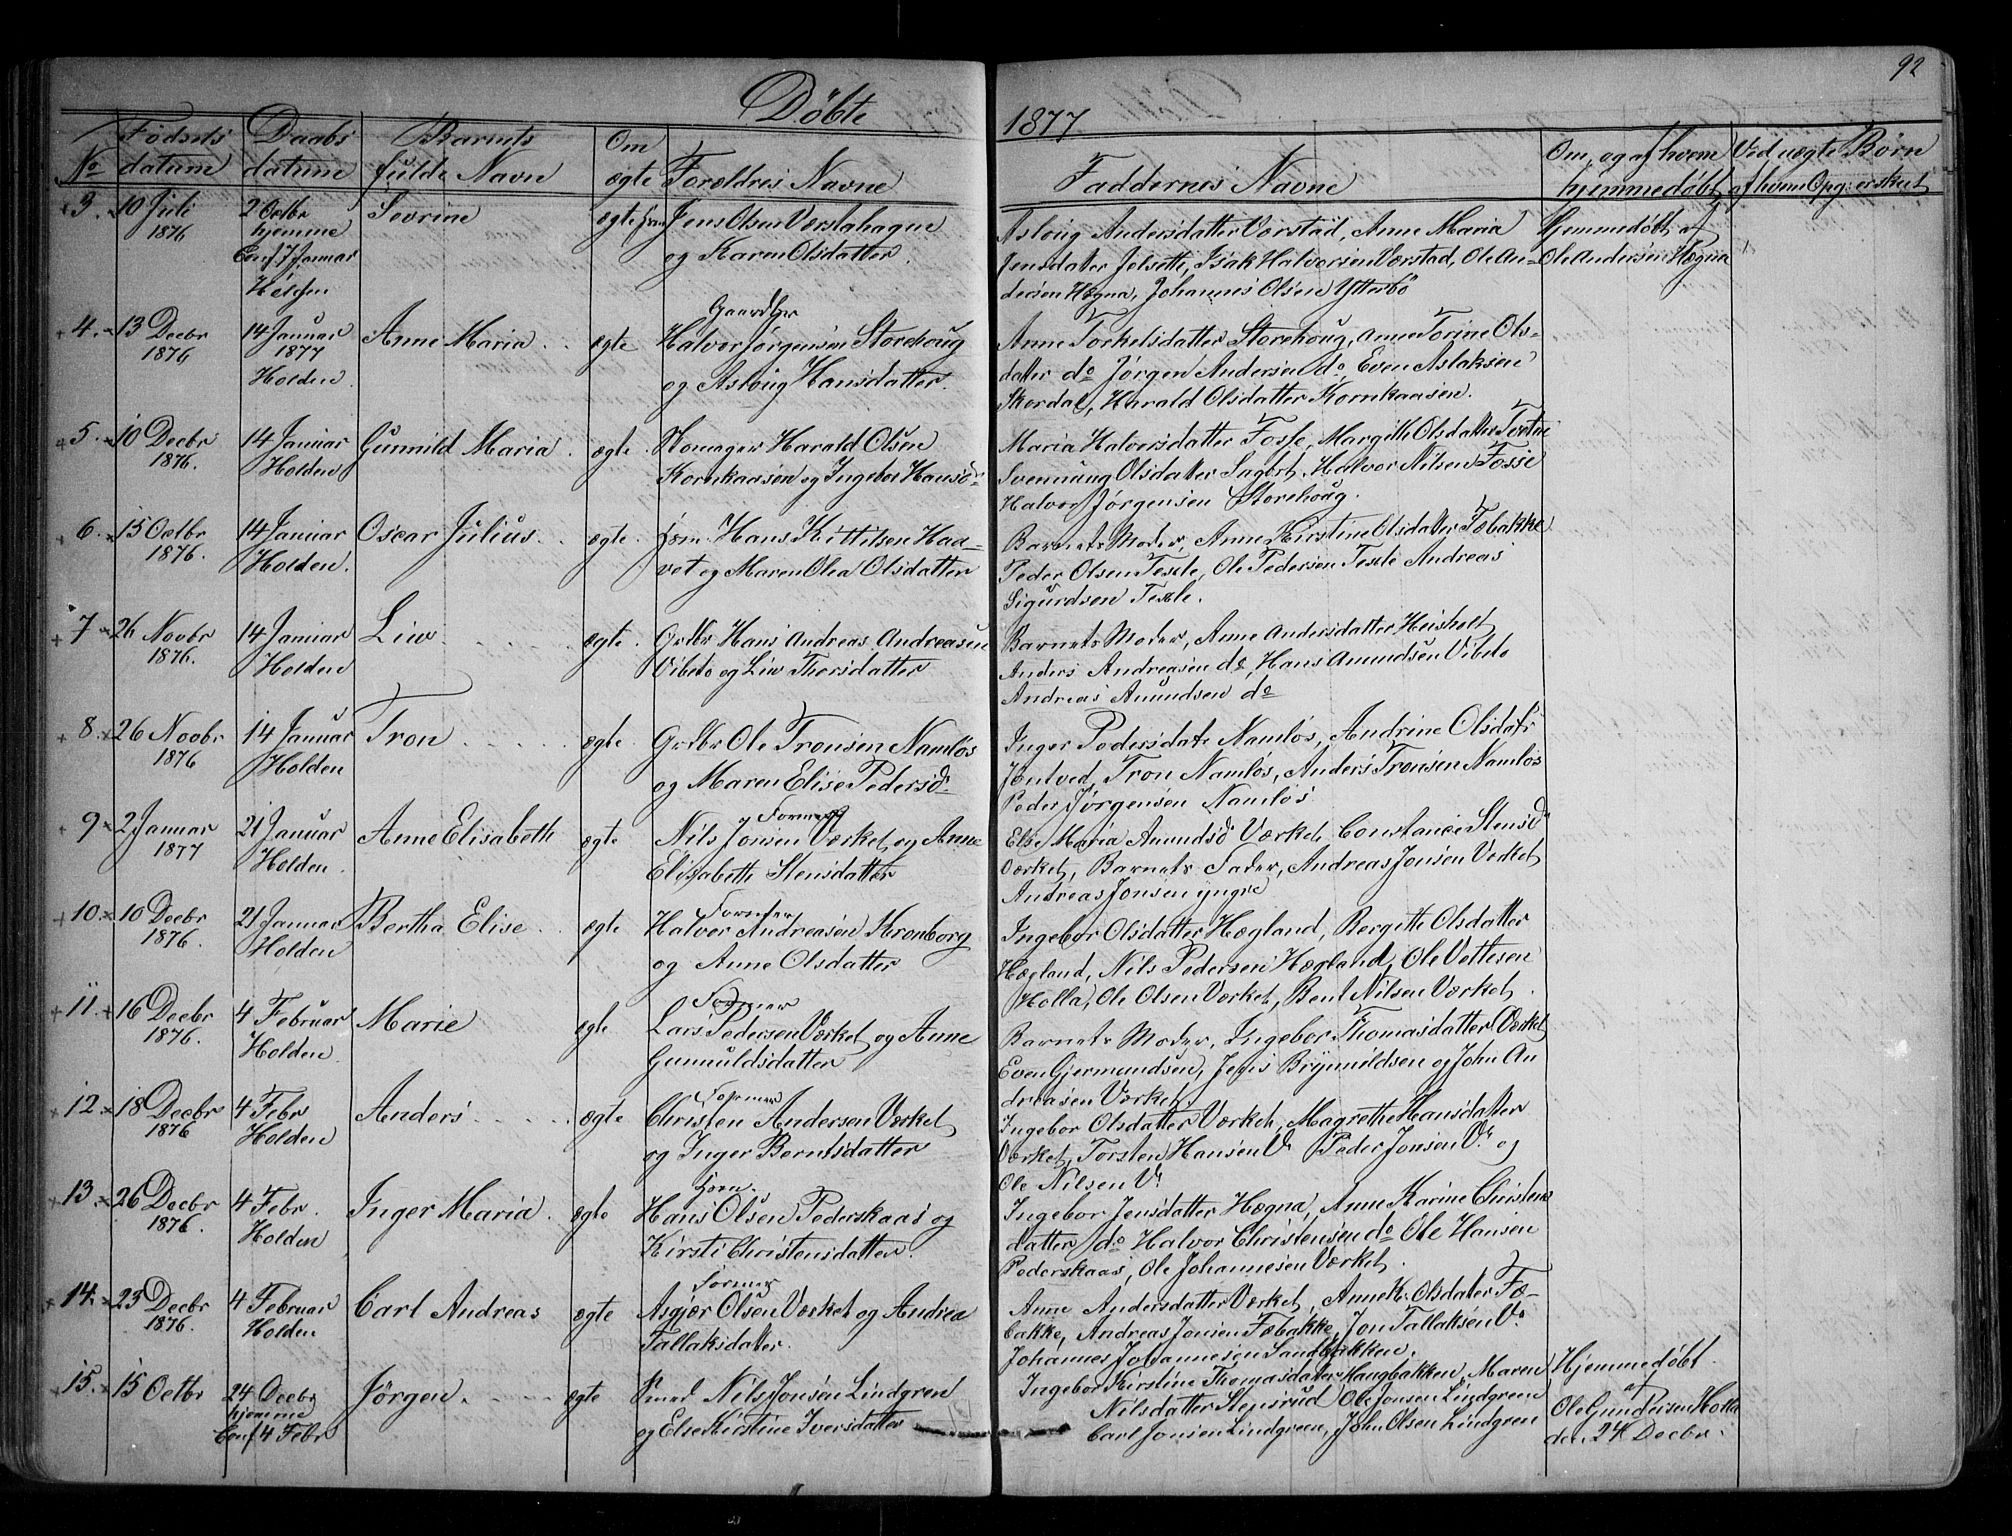 92
Døbte 1877
No
Fødsels datum
Daabs datum
Barnets fulde Navn
Om ægte
Forældres Navne
Faddernes Navne
Om, og af hvem hjemmedøbt
Ved uægte Børn af hvem Opg: er skeet
3. 10 Juli 1876
2 Octbr hjemme Conf. 7 Januar Holden
Sevrine
ægte
Jens Olsen Værstahagen
og Karen Olsdatter.
Aslaug Andersdatter Værstad, Anne Maria
Jensdatter Jelseth, Isak Halvorsen Værstad, Ole An-
dersen Hægna, Johannes Olsen Ytterbø
Hjemmedøbt af
Ole Andersen Hægna
4. 13 Decbr 1876
14 Januar 1877 Holden
Anne Maria
ægte
Gaardbr
Halvor Jørgensen Storehoug
og Asloug Hansdatter.
Anne Torkelsdatter Storehoug, Anne Torine Ols-
datter do Jørgen Andersen do, Even Aslaksen
Skordal, Harald Olsdatter Kornkaasen.
5. 10 Decbr 1876.
14 Januar Holden
Gunnild Maria
ægte
Harald Olsen
Kornkaasen og Ingebor Hansd.
Maria Halvorsdatter Fosse, Margitte Olsdatter Tvetene
Svennung Olsdatter Halvor Nilsen Fosse
Halvor Jørgensen Storehoug.
6. 15 Octbr 1876.
14 Januar Holden.
Oscar Julius.
ægte.
Form. Hans Kittilsen Haa-
vet og Maren Olea Olsdatter
Barnets Moder, Anne Kirstine Olsdatter Fæbakke
Peder Olsen Texle, Ole Pedersen Texle Andreas
Sigurdsen Texle.
7 26 Novbr 1876.
14 Januar Holden
Liw
ægte
Grdbr Hans Andreas Andreasen
Vibeto og Liw Thorsdatter
Barnets Moder, Anne Andersdatter Heisholt
Anders Andreasen do, Hans Amundsen Vibeto
Andreas Amundsen do
8. 26 Novbr 1876
14 Januar Holden
Tron
ægte.
Grdbr Ole Tronsen Namløs
og Maren Elise Pedersd.
Inger Pedersdatr Namløs, Andrine Olsdatr
Jøntved, Tron Namløs, Anders Tronsen Namløs
Peder Jørgensen Namløs
9 2 Januar 1877
21 Januar Holden.
Anne Elisabeth
ægte
Former
Nils Jonsen Værket og Anne
Elisabeth Stensdatter
Else Maria Amundsd Værket, Constance Stensd
Værket, Barnets Fader, Andreas Jonsen Værket
Andreas Jonsen yngre
10. 10 Decbr 1876.
21 Januar Holden
Bertha Elise
ægte
Former
Halvor Andreasen Kronborg
og Anne Olsdatter
Ingebor Olsdatter Hægland, Bergitte Olsdatter
Hægland, Nils Pedersen Hægland, Ole Vettesen
Holla, Ole Olsen Værket, Bent Nilsen Værket.
11. 16 Decbr 1876.
4 Februar Holden
Marie
ægte
Former
Lars Pedersen Værket og Anne
Gunnuldsdatter
Barnets Moder, Ingebor Thomasdatter Værket
Even Gjermundsen, Jens Brynnildsen og John An
dreasen Værket.
12. 18 Decbr 1876
4 Febr Holden
Anders
ægte
Former
Christen Andersen Værket
og Inger Berntsdatter
Ingebor Olsdatter Værket, Magrethe Hansdatter
Værket, Torsten Hansen V. Peder Jonsen V. og
Ole Nilsen V.
13. 26 Decbr 1876.
4 Febr. Holden
Inger Maria.
ægte
Form.
Hans Olsen Pederskaas og
Kirsti Christensdatter.
Ingebor Jensdatter Hægna, Anne Karine Christens
datter do Halvor Christensen do Ole Hansen
Pederskaas, Ole Johannesen Værket.
14. 23 Decbr 1876.
4 Februar Holden
Carl Andreas
ægte
Former
Asgjær Olsen Værket og Andrea
Tallaksdatter.
Anne Andersdatter Værket, Anne K. Olsdatter Fæ-
bakke, Andreas Jonsen Fæbakke, Jon Tallaksen V.
Johannes Johannesen Sandbakken.
15. 15 Octbr
24 Decbr hjemme Conf 4 Febr
Jørgen.
ægte
Smed Nils Jonsen Lindgren
og Else Kirstine Iversdatter
Ingebor Kirstine Thomasdatter Haugbakken, Maren
Nilsdatter Stensrud Ole Jonsen Lindgreen
Carl Jonsen Lindgreen, John Olsen Lindgreen
Hjemmedøbt
af
Ole Gundersen Holla
den 24 Decbr.